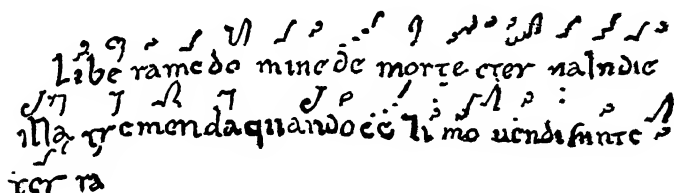 Libe ramedo minede morte eter naIndie
illa tremendaquando cęli mo uendisunte
ter ra